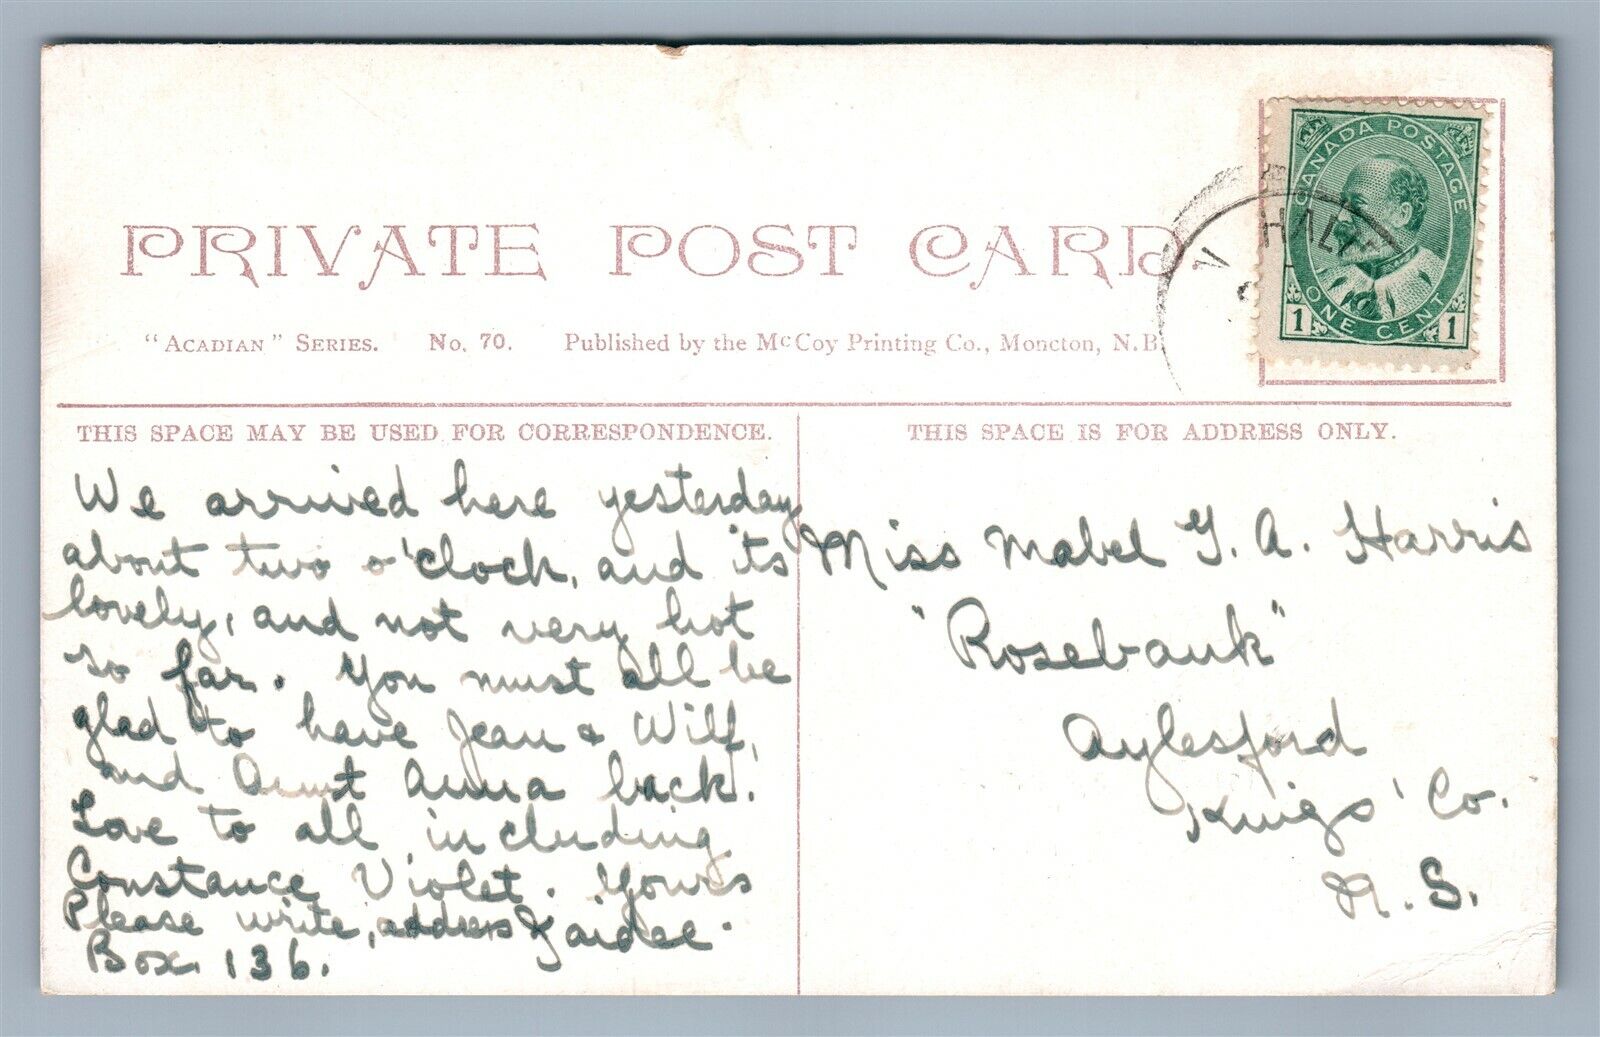 PRIVATE POST CARD
"ACADIAN" SERIES. No. 70. Published by the McCoy Printing Co., Moncton, N.B.
CANADA POSTAGE
1 ONE CENT 1
HALI
THIS SPACE MAY BE USED FOR CORRESPONDENCE.
We arrived here yesterday
about two o'clock, and its
lovely, and not very hot
so far. You must all be
glad to have Jean & Wilf,
and Aunt Anna back.
Love to all including
Constance Violet. Yours
Please write, address
Box 136.
THIS SPACE IS FOR ADDRESS ONLY.
Miss Mabel G. A. Harris
"Rosebank"
Aylesford
Kings' Co.
N. S.